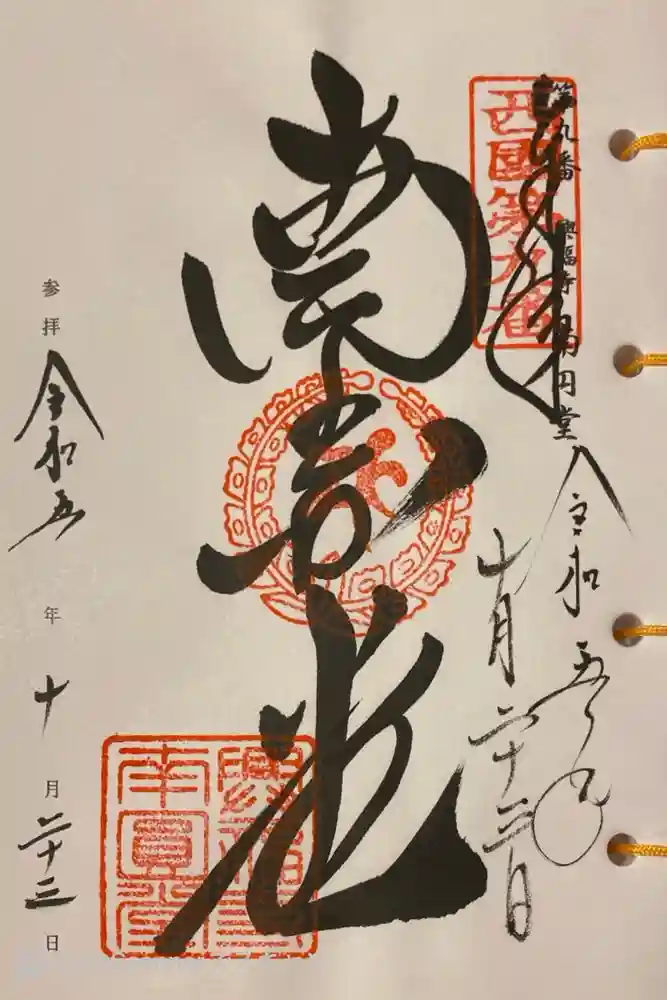 奉拝
第九番 興福寺 南円堂
令和五年
十月二十三日
西国第九番
南円堂
興福寺
南圓堂
参拝 令和五年十月二十三日